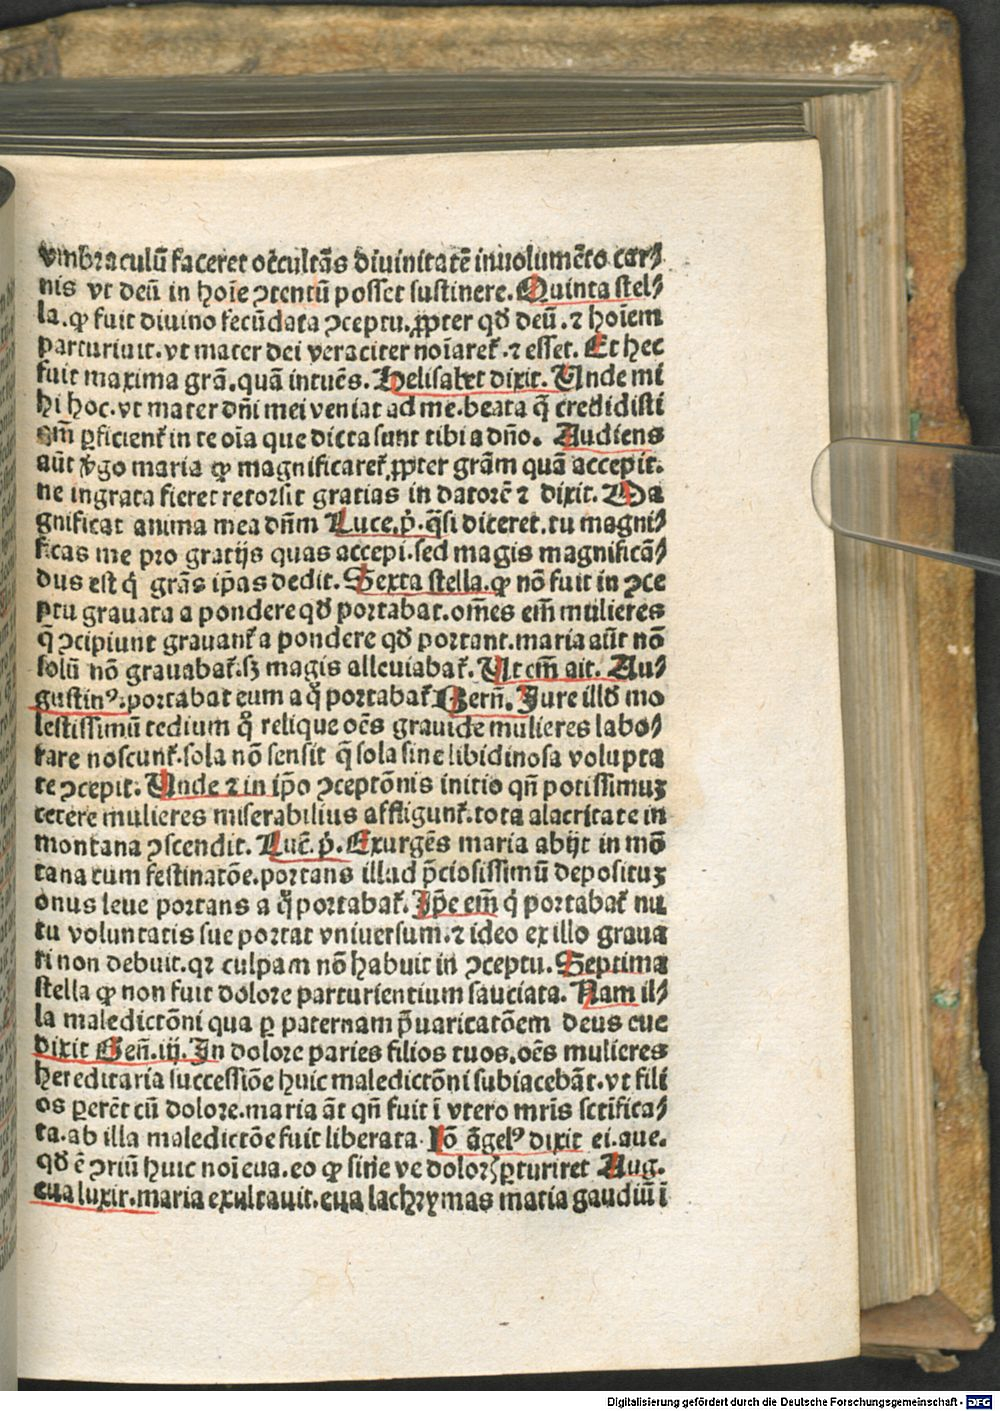 vmbraculū faceret occultās diuinitatē inuolumēto car⸗
nis vt deū in hoīe ꝯtentū posset sustinere. Quinta stel⸗
la. ꝙ fuit diuino fecūdata ꝯceptu. ꝓpter qd̄ deū. ⁊ hoīem
parturiuit. vt mater dei veraciter noīaret᷑. ⁊ esset. Et hec
fuit maxima grā. quā intuēs. Helisabet dixit. Unde mi
hi hoc. vt mater dn̄i mei veniat ad me. beata q̄ credidisti
qm̄ ꝑficient᷑ in te oīa que dicta sunt tibi a dn̄o. Audiens
aūt v̄go maria ꝙ magnificaret᷑ ꝓpter grām quā accepit.
ne ingrata fieret retorsit gratias in datorē ⁊ dixit. Ma
gnificat anima mea dn̄m Luce. p̄. q̄si diceret. tu magni⸗
ficas me pro gratijs quas accepi. sed magis magnificā⸗
dus est q̇ grās ip̄as dedit. Sexta stella. ꝙ nō fuit in ꝯce
ptu grauata a pondere qd̄ portabat. om̄es em̄ mulieres
q̄ ꝯcipiunt grauant᷑ a pondere qd̄ portant. maria aūt nō
solū nō grauabat᷑. sꝫ magis alleuiabat᷑. Ut em̄ ait. Au⸗
gustinꝰ. portabat eum a q̊ portabat᷑ Bern̄. Iure illd̄ mo
lestissimū tedium q̊ relique oēs grauide mulieres labo⸗
rare noscunt᷑. sola nō sensit q̄ sola sine libidinosa volupta
te ꝯcepit. Unde ⁊ in ip̄o ꝯceptōnis initio qn̄ potissimuꝫ
cetere mulieres miserabilius affligunt᷑. tota alacritate in
montana ꝯscendit. Luc̄. p̄. Exurgēs maria abijt in mō
tana cum festinatōe. portans illud p̄ciosissimū deposituꝫ
onus leue portans a q̊ portabat᷑. Ip̄e em̄ q̇ portabat᷑ nu
tu voluntatis sue portat vniuersum. ⁊ ideo ex illo graua
ri non debuit. qꝛ culpam nō habuit in ꝯceptu. Septima
stella ꝙ non fuit dolore parturientium sauciata. Nam il⸗
la maledictōni qua ꝑ paternam p̄uaricatōem deus eue
dixit Gen̄. iij. In dolore paries filios tuos. oēs mulieres
hereditaria successiōe huic maledictōni subiacebāt. vt fili
os ꝑerēt cū dolore. maria āt qn̄ fuit ī vtero mr̄is sctīfica⸗
ta. ab illa maledictōe fuit liberata. Iō āgelꝰ dixit ei. aue.
qd̄ ē ꝯriū huic noī eua. eo ꝙ sine ve dolorꝭ ꝑturiret Aug.
eua luxit. maria exultauit. eua lachrymas maria gaudiū ī
Digitalisierung gefördert durch die Deutsche Forschungsgemeinschaft - DFG